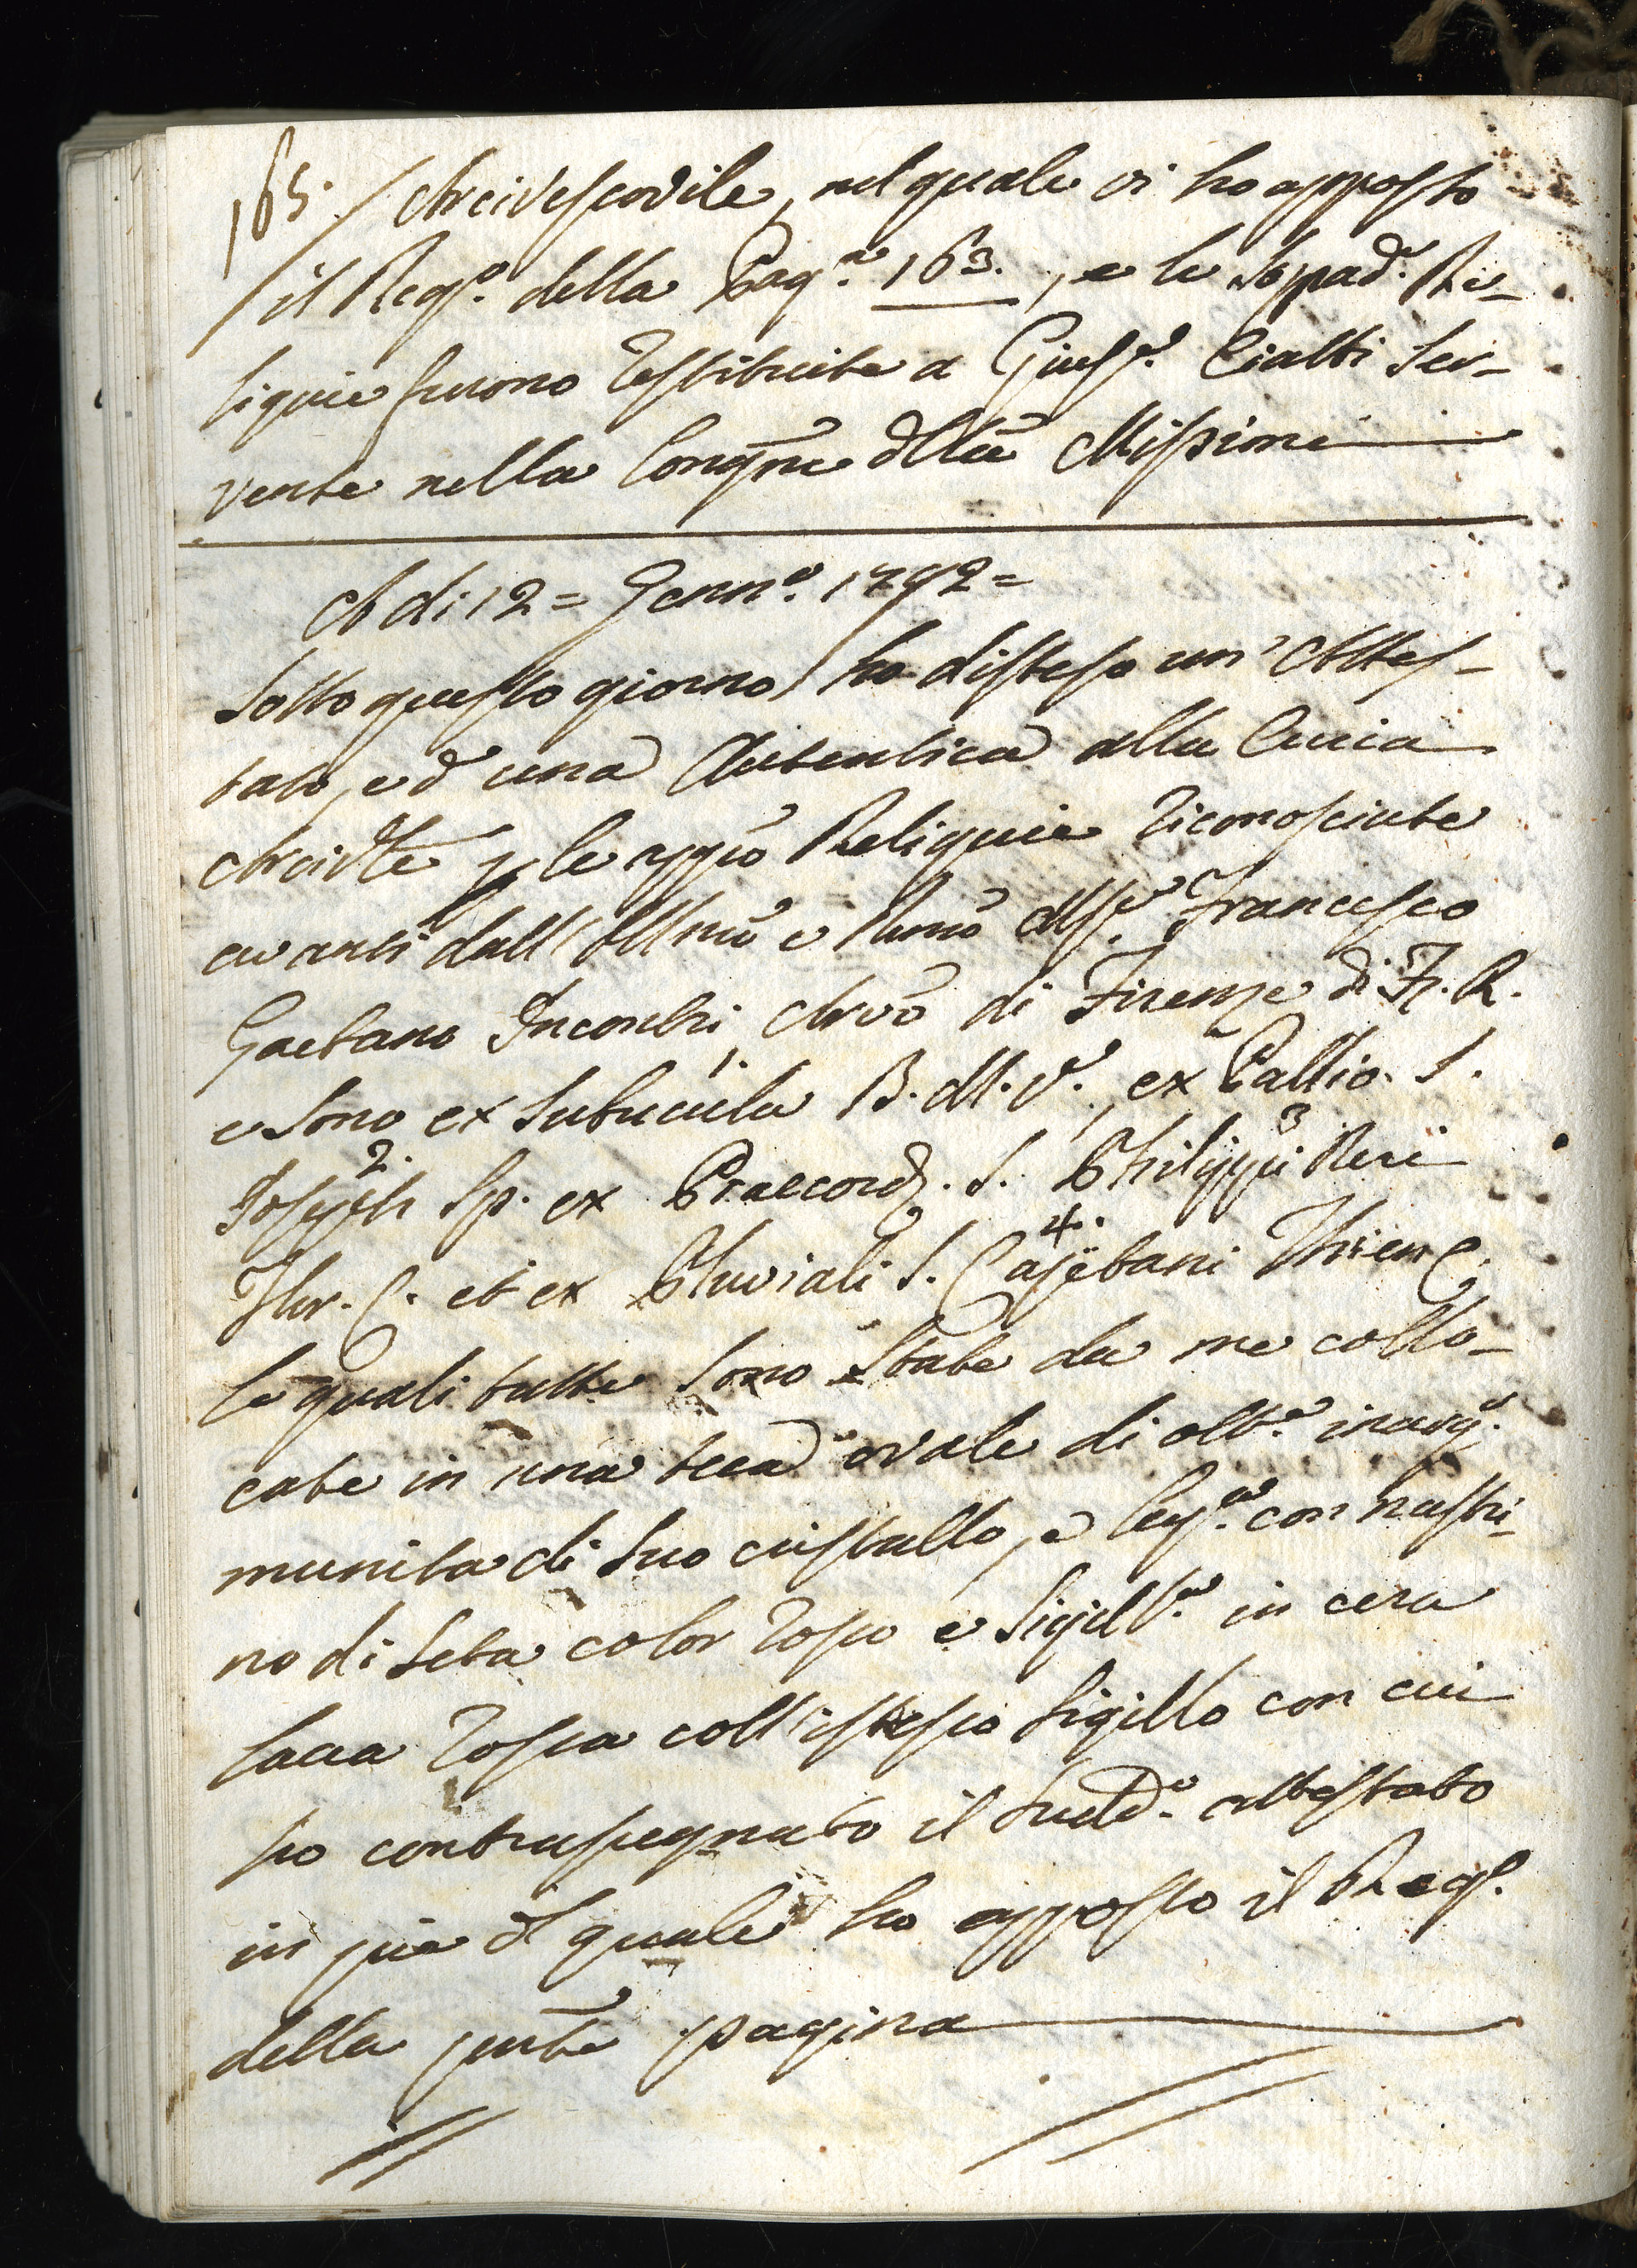 165. Arcivescovile, nel quale vi ho apposto
il Reg.º della Pag.ª 163., e le sopad.e Re-
liquie furono restituite a Gius.e Cialli ser-
vente nella Congne dlla Missione
A di 12 = Genn.º 1792 =
Sotto questo giorno ho disteso un' Attes-
tato, ed una Autentica alla Curia
Arcivle p le appiè Reliquie riconosciute
avanti dall' Illmo e Rmo Mse.r Francesco
Gaetano Incontri Arvo di Firenze di F. R.
e sono ex Subucula 1. B. M. V., ex Pallio S.
Joseph 2. Sp. ex Praecord. S. Philippi 3 Neri
Flor. C. et ex Pluviali S. Cajetani 4. Thien C.
le quali tutte sono state da me collo-
cate in una teca ovale di ott.e inarg.
munita di suo cristallo, e leg.ta con nastri-
no di seta color rosso e sigill.ta in cera
lacca rossa coll' istesso sigillo con cui
ho contrassegnato il sudd.º attestato
in piè dl quale ho apposto il Reg.º
della pnte pagina